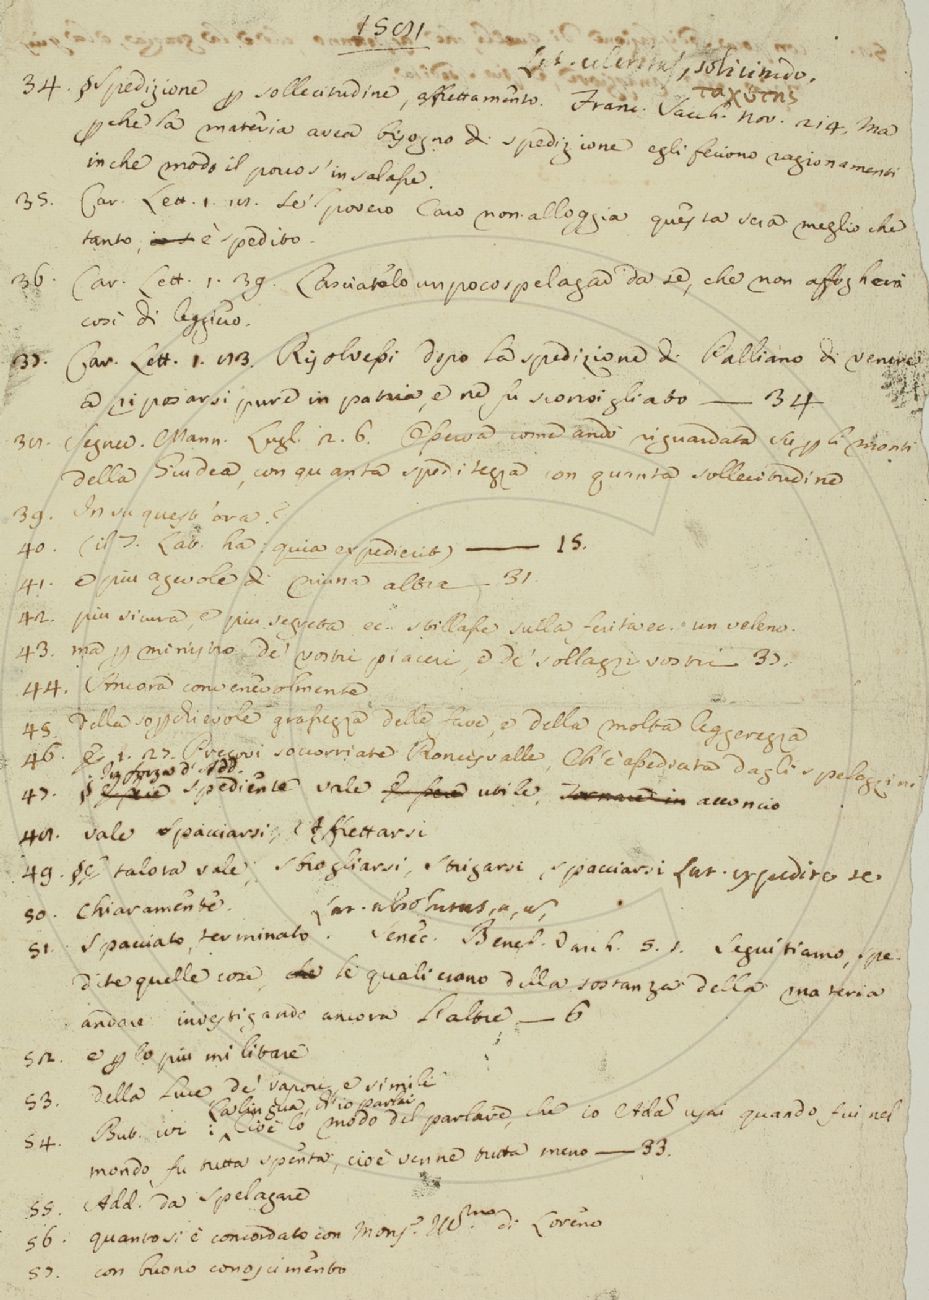 1581
Lat. celeritas, solicitudo,
ταχύτης
34. § Spedizione p sollecitudine, affrettamento. Franc. Sacch. nov. 214. Ma
p che la materia avea bisogno di spedizione egli feciono ragionamenti
in che modo il porco s'insalasse.
35. Car. Lett. 1. Se 'l povero Caro non alloggia questa sera meglio che
tanto, è spedito.
36. Car. Lett. 1. 39. Lasciatelo un poco spelagar da se, che non affogherà
così di leggiero.
37. Car. Lett. 1. 113. Risolvessi dopo la spedizione di Palliano di venire
a riposarsi pure in patria, e ne fu sconsigliato — 34
38. Segner. Mann. Lugl. 12. 6. E però come andò riguardata su p li monti
della Giudea, con quanta speditezza con quanta sollecitudine
39. In su quest'ora.
40. (il T. Lat. ha: quia expedierit) — 15.
41. e più agevole di niuna altra — 31.
42. più sicura, e più segreta ec. stillasse sulla ferita ec. un veleno.
43. ma p ministro de' vostri piaceri, e de' sollazzi vostri — 37.
44. Ancora convenevolmente
45. della soperchievole grassezza delle fave, e della molta leggerezza
46. 1. 27. Pregovi soccorriate Roncisvalle, Ch'è aspedicata dagli spelaggini
in forza d'Add.
47. § spediente vale utile, acconcio
48. vale Spacciarsi, Affrettarsi
49. § talora vale, sbrogliarsi, strigarsi, spacciarsi Lat. expedire se.
50. Chiaramente. Lat. absolutus, a, um,
51. Spacciato, terminato. Senec. Benef. Varch. 5. 1. Seguitiamo, spe-
dite quelle cose, le quali erano della sostanza della materia
andare investigando ancora l'altre — 6
52. e p lo più militare
53. della luce de' vapori, e simili
La lingua, ch'io parlai
54. But. ivi: cioè lo modo del parlare, che io Adam usai quando fui nel
mondo, fu tutta spenta, cioè venne tutta meno — 33.
55. Add. da Spelagare
56. quanto si è concordato con Mons.r Ill.mo di Loreno
57. con buono conoscimento